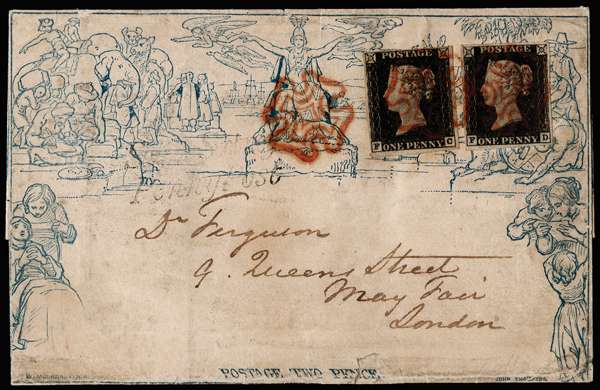 POSTAGE POSTAGE
F ONE PENNY C F ONE PENNY D
Penny
Dr Ferguson
9. Queens Street
May Fair
London
POSTAGE TWO PENCE.
JOHN THOMPSON